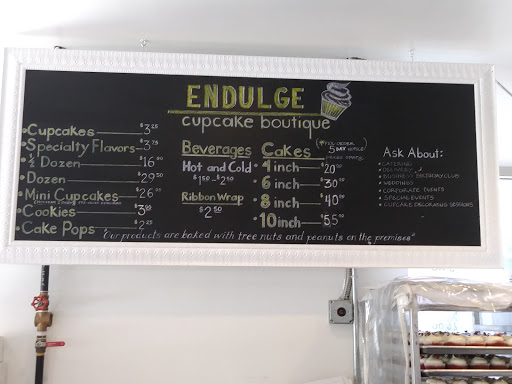 ENDULGE
cupcake boutique
Cupcakes $3.25
Specialty Flavors $3.75
½ Dozen $16.
Dozen $29.50
Mini Cupcakes $26.
Cookies $3.
Cake Pops $2.25
Beverages
Hot and Cold
$1.50 - $2.50
Ribbon Wrap
$2.50
Cakes
5 DAY
4 inch $20
6 inch $30
8 inch $40
10 inch $55
Ask About:
CATERING
DELIVERY
BUSINESS BIRTHDAY CLUB
WEDDINGS
CORPORATE EVENTS
SPECIAL EVENTS
CUPCAKE DECORATING SESSIONS
"Our products are baked with tree nuts and peanuts on the premises"